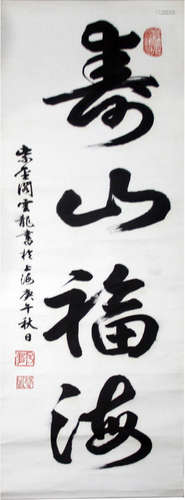 壽山福海
紫金閣雲龍書於上海庚午秋日